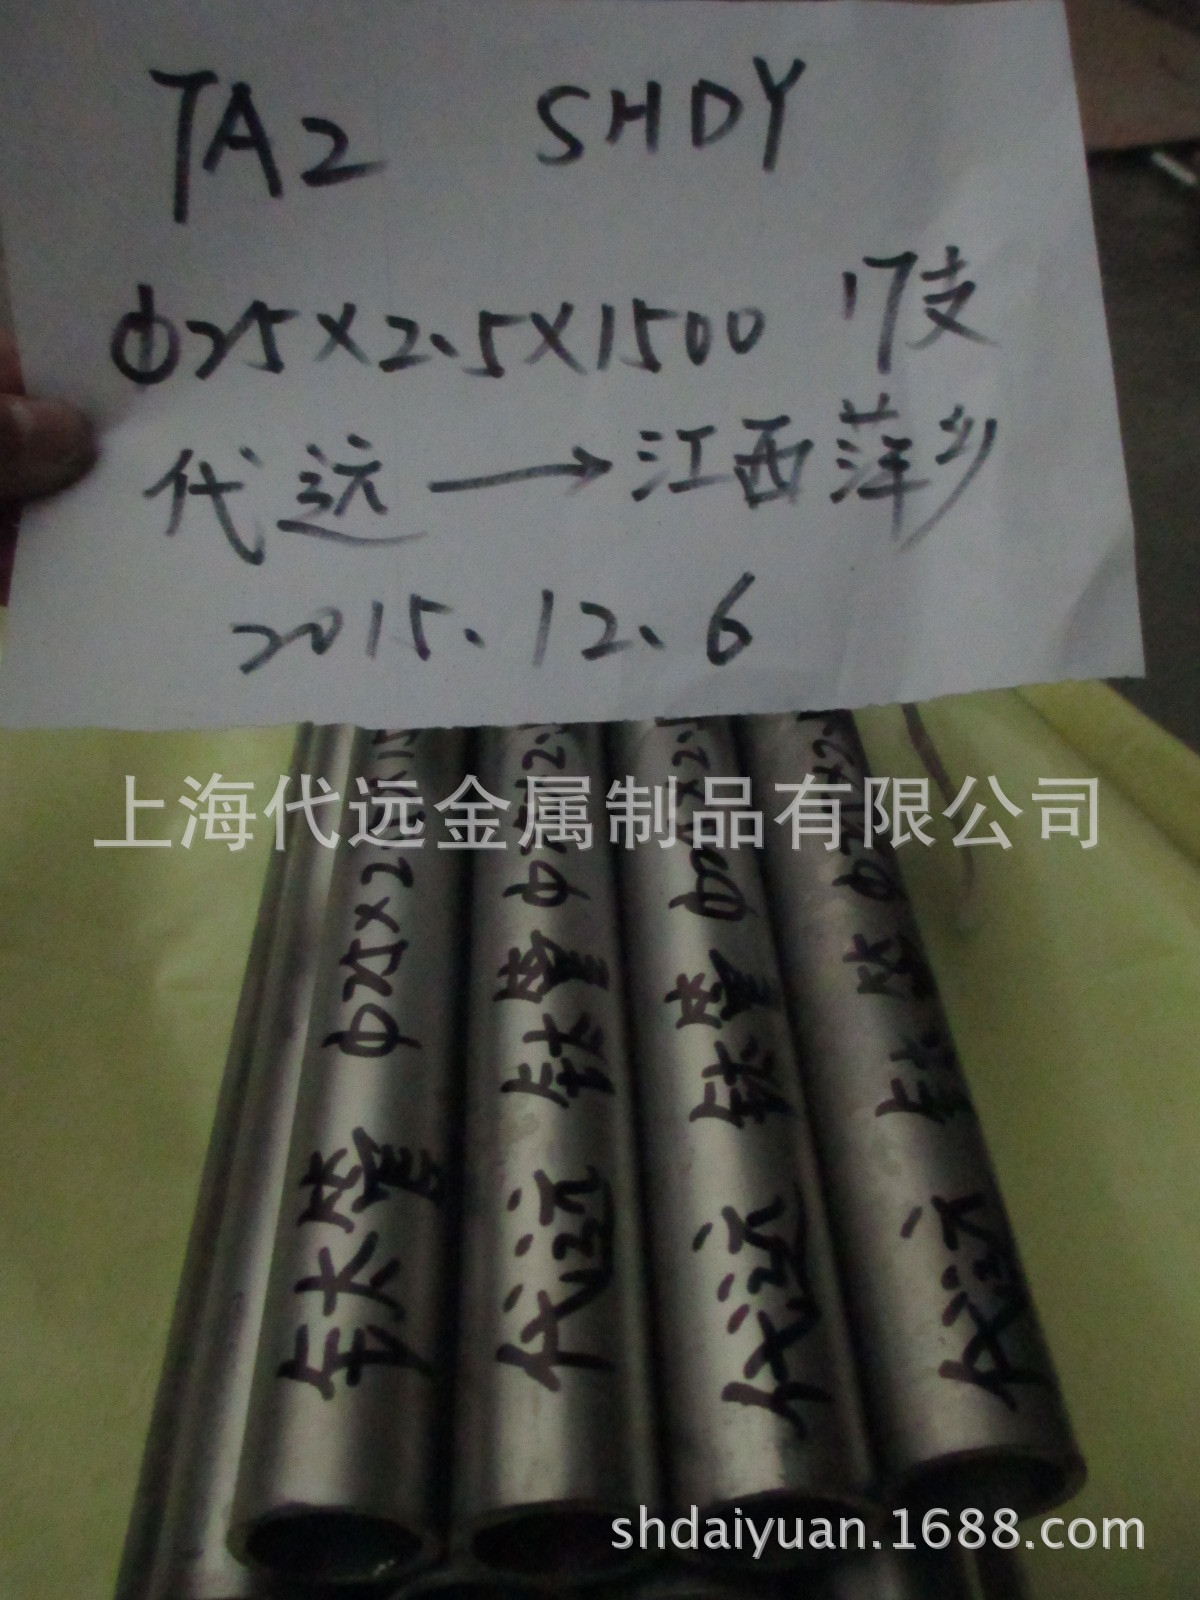 TA2 SHDY
φ25×2.5×1500 17支
代远→江西萍乡
2015.12.6
上海代远金属制品有限公司
钛管 φ25×2
代远 钛管 φ
代远 钛管 φ
代远 钛管 φ
shdaiyuan.1688.com